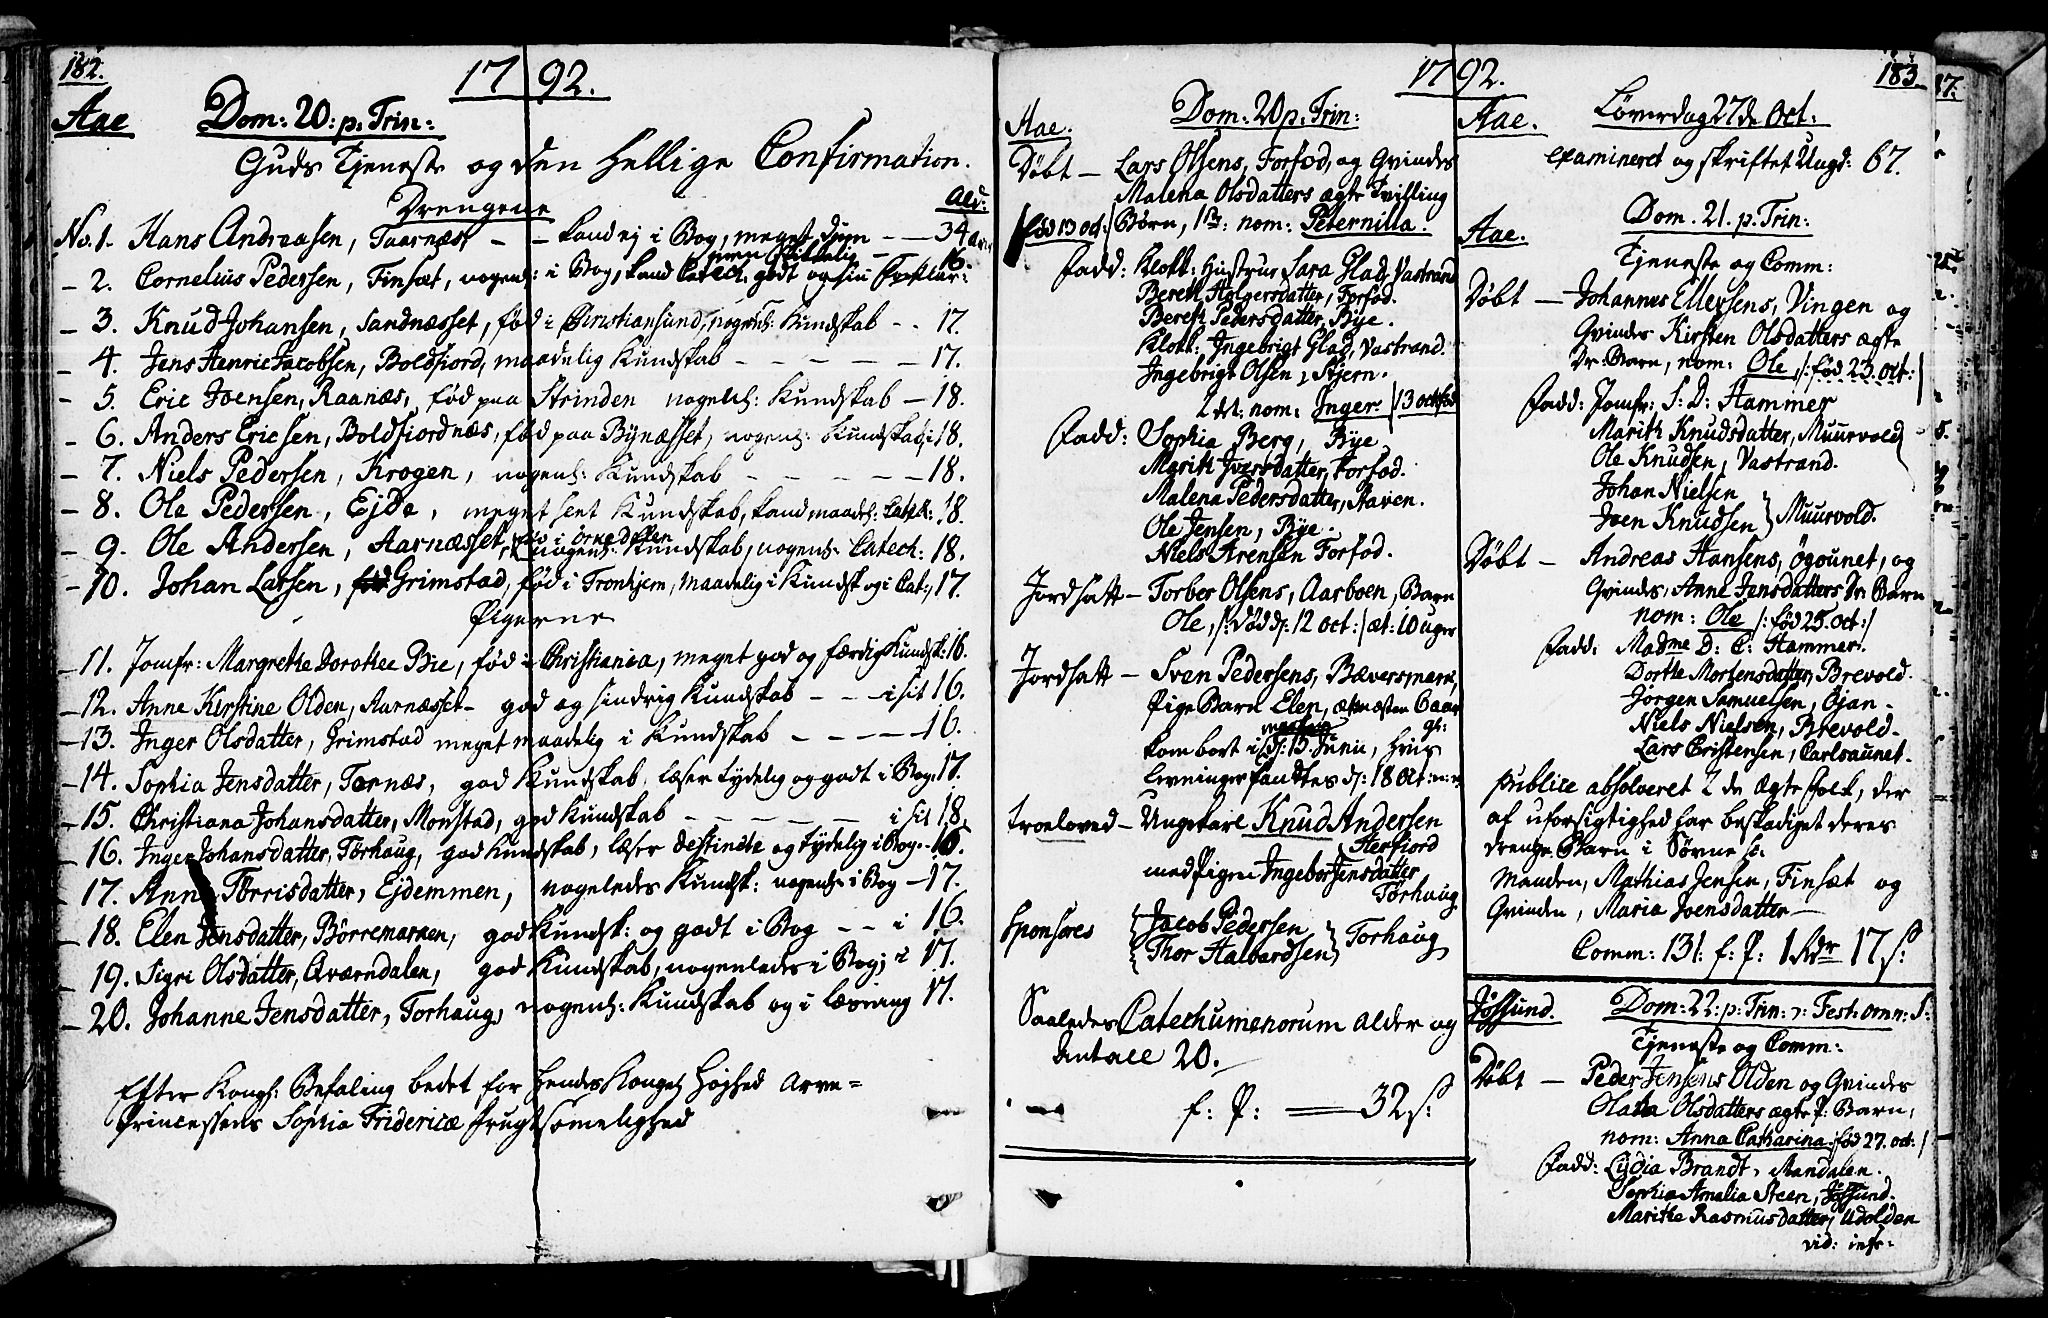 182.
1792.
Aae Dom: 20: p: Trin:
Guds Tjeneste og den hellige Confirmation.
Drengene
Ald:
No. 1. Hans Andreasen, Taarnæs, - - kand ej i Bog, meget dum - - 34 aar
men skikkelig
- 2. Cornelius Pedersen, Finsæt, nogenl: i Bog, kand Catech: godt og sin Forklar: 16
- 3. Knud Johansen, Sandnæsset, fød i Christiansund, nogenl: Kundskab - - 17.
- 4. Jens Henric Jacobsen, Boldfiord, maadelig Kundskab - - - - - 17.
- 5. Eric Joensen, Raanæs, fød paa Strinden nogenl: Kundskab - 18.
- 6. Anders Ericsen, Boldfiordnæs, fød paa Bynæsset, nogenl: Kundskab, i 18.
- 7. Niels Pedersen, Krogen, nogenl: Kundskab - - - - - 18.
- 8. Ole Pedersen, Ejde, meget slet Kundskab, kand maadel: Catech: 18.
fød i Ørkedalen
- 9. Ole Andersen, Aarnæsset, nogenl: Kundskab, nogenl: Catech: 18.
- 10. Johan Larsen, Grimstad, fød i Tronhjem, maadelig i Kundsk og i Cat: 17.
Pigerne
- 11. Jomfr: Margrethe Dorothee Bie, fød i Christiania, meget god og færdig Kundsk: 16.
- 12. Anne Kirstine Olden, Aarnæsset - god og sindrig Kundskab - - - i sit 16.
- 13. Inger Olsdatter, Grimstad meget maadelig i Kundskab - - - - - 16.
- 14. Sophia Jensdatter, Tørnæs, god Kundskab, læser tydelig og godt i Bog. 17.
- 15. Christiana Johansdatter, Monstad, god Kundskab - - - - - i sit 18.
- 16. Inger Johansdatter, Tørhaug, god Kundskab, læser destincte og tydelig i Bog. - 16.
- 17. Anne Tørrisdatter, Ejdemmen, nogeledes Kundsk: nogenl: i Bog - 17.
- 18. Elen Jensdatter, Børremarken, god Kundsk: og godt i Bog - - i 16.
- 19. Sigri Olsdatter, Qværndalen, god Kundskab, nogenledes i Bog; i 17.
- 20. Johanne Jensdatter, Torhaug, nogenl: Kundskab og i læsning 17.
Efter Kongl: Befaling bedet for Hendes Kongel: Højhed Arve=
Princessens Sophia Fridericæ frugtsomelighed
1792.
Aae. Dom: 20 p: Trin:
Døbt - Lars Olsens, Forfod, og Qvindes
Malena Olsdatters ægte Tvilling
/: fød 13 oct: / Børn, 1ste: nom: Peternilla.
Fadd: Klokk: Hustrue Sara Glad, Vastrand
Bereth Holgersdatter, Forfod.
Bereth Pedersdatter, Bye.
Klokk: Ingebrigt Glad, Vastrand.
Ingebrigt Olsen, Stjern.
2det: nom: Inger. / 13 oct fød
Fadd: Sophia Berg, Bye
Marith Iversdatter, Forfod.
Malena Pedersdatter, Raven.
Ole Jensen, Bye.
Niels Arensen Forfod.
Jordsatt - Torber Olsens, Aarboen, Barn
Ole, /: død d: 12 oct: / æt: 10 uger
Jordsatt - Sven Pedersens, Bæversmark,
Pige Barn Elen, æt: næsten 6 aar
gl:
kom bort i d: 13 Junii, hvis
levninger fandtes d: 18 Oct:
troeloved - Ungekarl Knud Andersen
Herfiord
med Pigen Ingebor Jensdatter
Tørhaug
Sponsores { Jacob Pedersen
Thor Halvardsen } Torhaug
Saaledes Catechumenorum Alder og
Antall 20.
f: P: == 32 s:
183.
Aae. Løverdag 27de Oct:
examineret og skriftet Ungd: 67.
Aae. Dom. 21. p: Trin:
Tjeneste og Comm:
Døbt - Johannes Ellersens, Vingen og
Qvindes Kirsten Olsdatters ægte
Dr: Barn, nom: Ole, /: fød 23. oct: /
Fadd: Jomfr: S: D: Hammer
Marith Knudsdatter, Muurvold
Ole Knudsen, Vastrand.
Johan Nielsen
Joen Knudsen } Muurvold.
Døbt - Andreas Hansens, Øgounet, og
Qvindes, Anne Jensdatters Dr: Barn
nom: Ole /: fød 25. oct: /
Fadd: Madme D: C: Hammer.
Dorthe Mortensdatter, Brevold.
Jørgen Samuelsen, Ojan -
Niels Nielsen, Brevold -
Lars Cristensen, Carlsaunet -
publice absolveret 2 de Ægte Folk, der
af uforsigtighed har beskadiget deres
Drenge Barn i Søvne s:
Manden, Mathias Jensen, Finsæt og
Qvinden, Maria Joensdatter -
Comm: 131: f: P: 1 Rdr 17 s:
Jøssund. Dom: 22: p: Trin: Fest: omn: S:
Tjeneste og Comm:
Døbt - Peder Jensens Olden og Qvindes
Olava Olsdatters ægte P: Barn,
nom: Anna Catharina /: fød 27. oct: /
Fadd: Lydia Brandt, Nandalen.
Sophia Amalia Steen, Jøssund.
Marithe Rasmusdatter, Udolden
vid: infr: